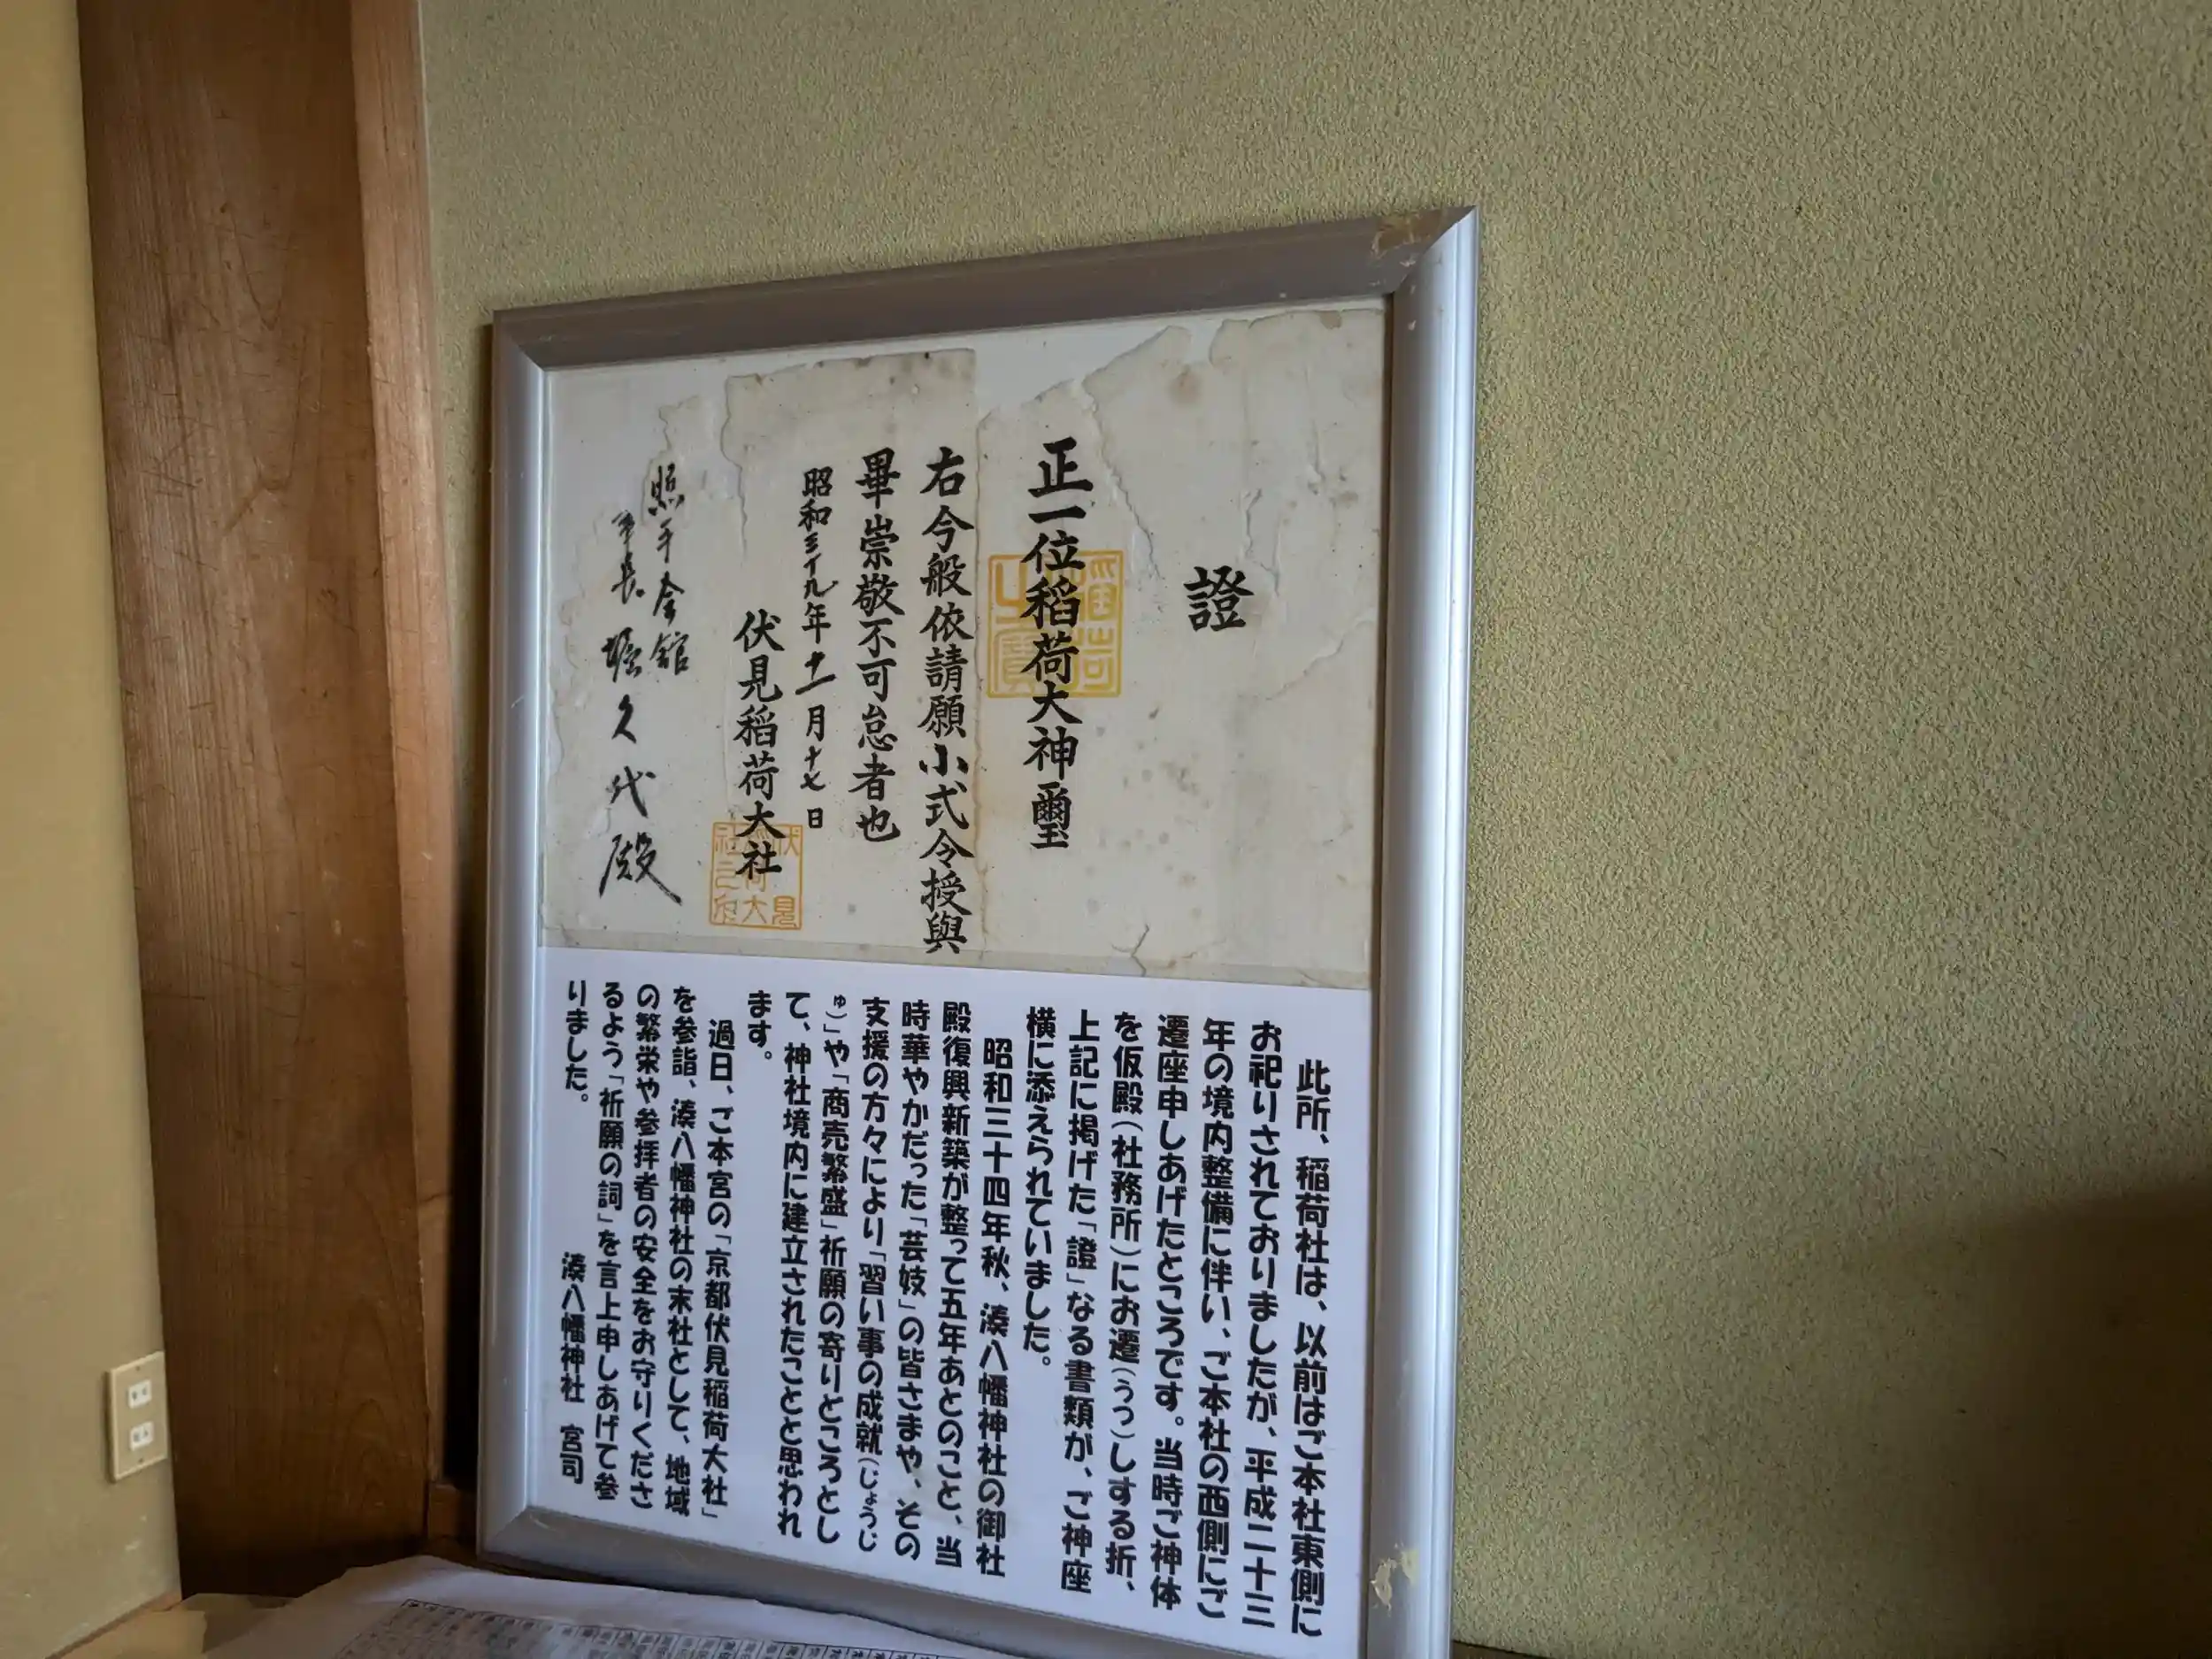 證
正一位稻荷大神璽
右今般依請願小式令授與
畢崇敬不可怠者也
昭和三十九年十一月十七日
伏見稻荷大社
照手会館
久代殿
此所、稲荷社は、以前はご本社東側に
お祀りされておりましたが、平成二十三
年の境内整備に伴い、ご本社の西側にご
遷座申しあげたところです。当時ご神体
を仮殿(社務所)にお遷(うつ)しする折、
上記に掲げた「證」なる書類が、ご神座
横に添えられていました。
昭和三十四年秋、湊八幡神社の御社
殿復興新築が整って五年あとのこと、当
時華やかだった「芸妓」の皆さまや、その
支援の方々により「習い事の成就(じょうじ
ゅ)」や「商売繁盛」祈願の寄りどころとし
て、神社境内に建立されたことと思われ
ます。
過日、ご本宮の「京都伏見稲荷大社」
を参詣、湊八幡神社の末社として、地域
の繁栄や参拝者の安全をお守りくださ
るよう「祈願の詞」を言上申しあげて参
りました。
湊八幡神社 宮司